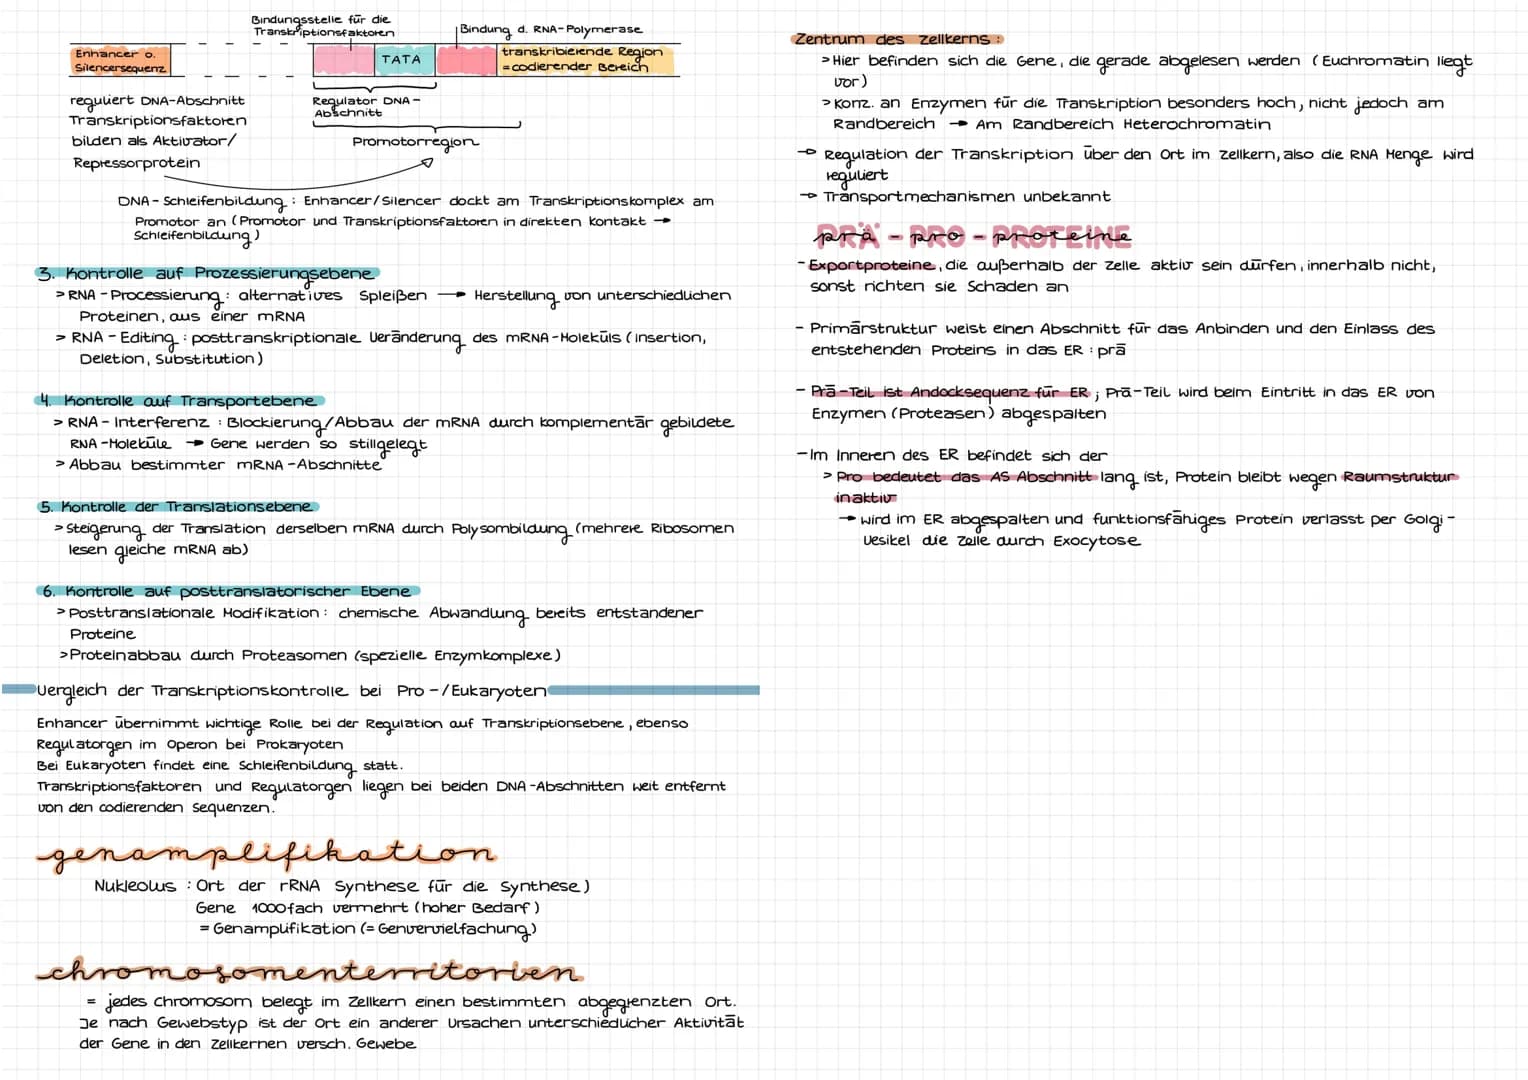 Bindungsstelle für die
Transkriptionsfaktoren
Bindung d. RNA-Polymerase
Enhancer o.
Silencersequenz
TATA
transkribierende Region
=codierender Bereich
reguliert DNA-Abschnitt
Transkriptionsfaktoren
bilden als Aktivator/
Repressorprotein
Regulator DNA-
Abschnitt
Promotorregion
DNA-Schleifenbildung: Enhancer/Silencer dockt am Transkriptionskomplex am
Promotor an (Promotor und Transkriptionsfaktoren in direkten Kontakt →
Schleifenbildung)
3. Kontrolle auf Prozessierungsebene
> RNA-Processierung: alternatives Spleißen → Herstellung von unterschiedlichen
Proteinen, aus einer mRNA
> RNA-Editing: posttranskriptionale Veränderung des mRNA-Moleküls (Insertion,
Deletion, Substitution)
4. Kontrolle auf Transportebene
> RNA-Interferenz: Blockierung/Abbau der mRNA durch komplementär gebildete
RNA-Moleküle → Gene werden so stillgelegt
> Abbau bestimmter mRNA-Abschnitte
5. Kontrolle der Translationsebene
> Steigerung der Translation derselben mRNA durch Polysombildung (mehrere Ribosomen
lesen gleiche mRNA ab)
6. Kontrolle auf posttranslatorischer Ebene
> Posttranslationale Modifikation: chemische Abwandlung bereits entstandener
Proteine
> Proteinabbau durch Proteasomen (spezielle Enzymkomplexe)
Vergleich der Transkriptionskontrolle bei Pro-/Eukaryoten
Enhancer übernimmt wichtige Rolle bei der Regulation auf Transkriptionsebene, ebenso
Regulatorgen im Operon bei Prokaryoten
Bei Eukaryoten findet eine Schleifenbildung statt.
Transkriptionsfaktoren und Regulatorgen liegen bei beiden DNA-Abschnitten weit entfernt
von den codierenden Sequenzen.
genamplifikation
Nukleolus: Ort der rRNA Synthese für die Synthese)
Gene 1000fach vermehrt (hoher Bedarf)
= Genamplifikation (= Genvervielfachung)
chromosomenterritorien
= jedes Chromosom belegt im Zellkern einen bestimmten abgegrenzten Ort.
Je nach Gewebstyp ist der Ort ein anderer Ursachen unterschiedlicher Aktivität
der Gene in den Zellkernen versch. Gewebe
Zentrum des Zellkerns:
> Hier befinden sich die Gene, die gerade abgelesen werden (Euchromatin liegt
vor)
> Konz. an Enzymen für die Transkription besonders hoch, nicht jedoch am
Randbereich → Am Randbereich Heterochromatin
→ Regulation der Transkription über den Ort im Zellkern, also die RNA Menge wird
reguliert
→ Transportmechanismen unbekannt
PRÄ-PRO-PROTEINE
- Exportproteine, die außerhalb der Zelle aktiv sein dürfen, innerhalb nicht,
sonst richten sie Schaden an
- Primärstruktur weist einen Abschnitt für das Anbinden und den Einlass des
entstehenden Proteins in das ER: prä
- Prä-Teil ist Andocksequenz für ER; Prä-Teil wird beim Eintritt in das ER von
Enzymen (Proteasen) abgespalten
- Im Inneren des ER befindet sich der
> Pro bedeutet das AS Abschnitt lang ist, Protein bleibt wegen Raumstruktur
inaktiv
→ wird im ER abgespalten und funktionsfähiges Protein verlasst per Golgi-
Vesikel die Zelle durch Exocytose